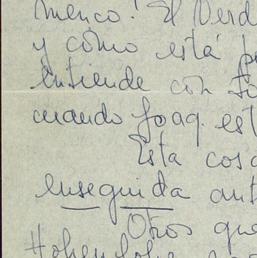 menco! El Verd
y cómo está p
entiende con to
cuando Joaq. est
Esta cosa
enseguida ant
Otros que
Hohenlohe